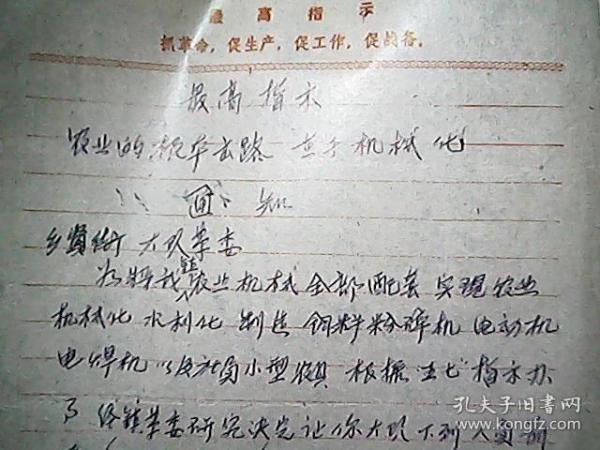 最高指示
抓革命，促生产，促工作，促战备。
最高指示
农业的根本出路在于机械化
通知
乡贤街大队革委
为将我镇农业机械全部配套实现农业
机械化水利化制造饲料粉碎机电动机
电焊机以及社句小型农具根据"五七"指示办
了经镇革委研究决定让你大队下列人员前
孔夫子旧书网
www.kongfz.com